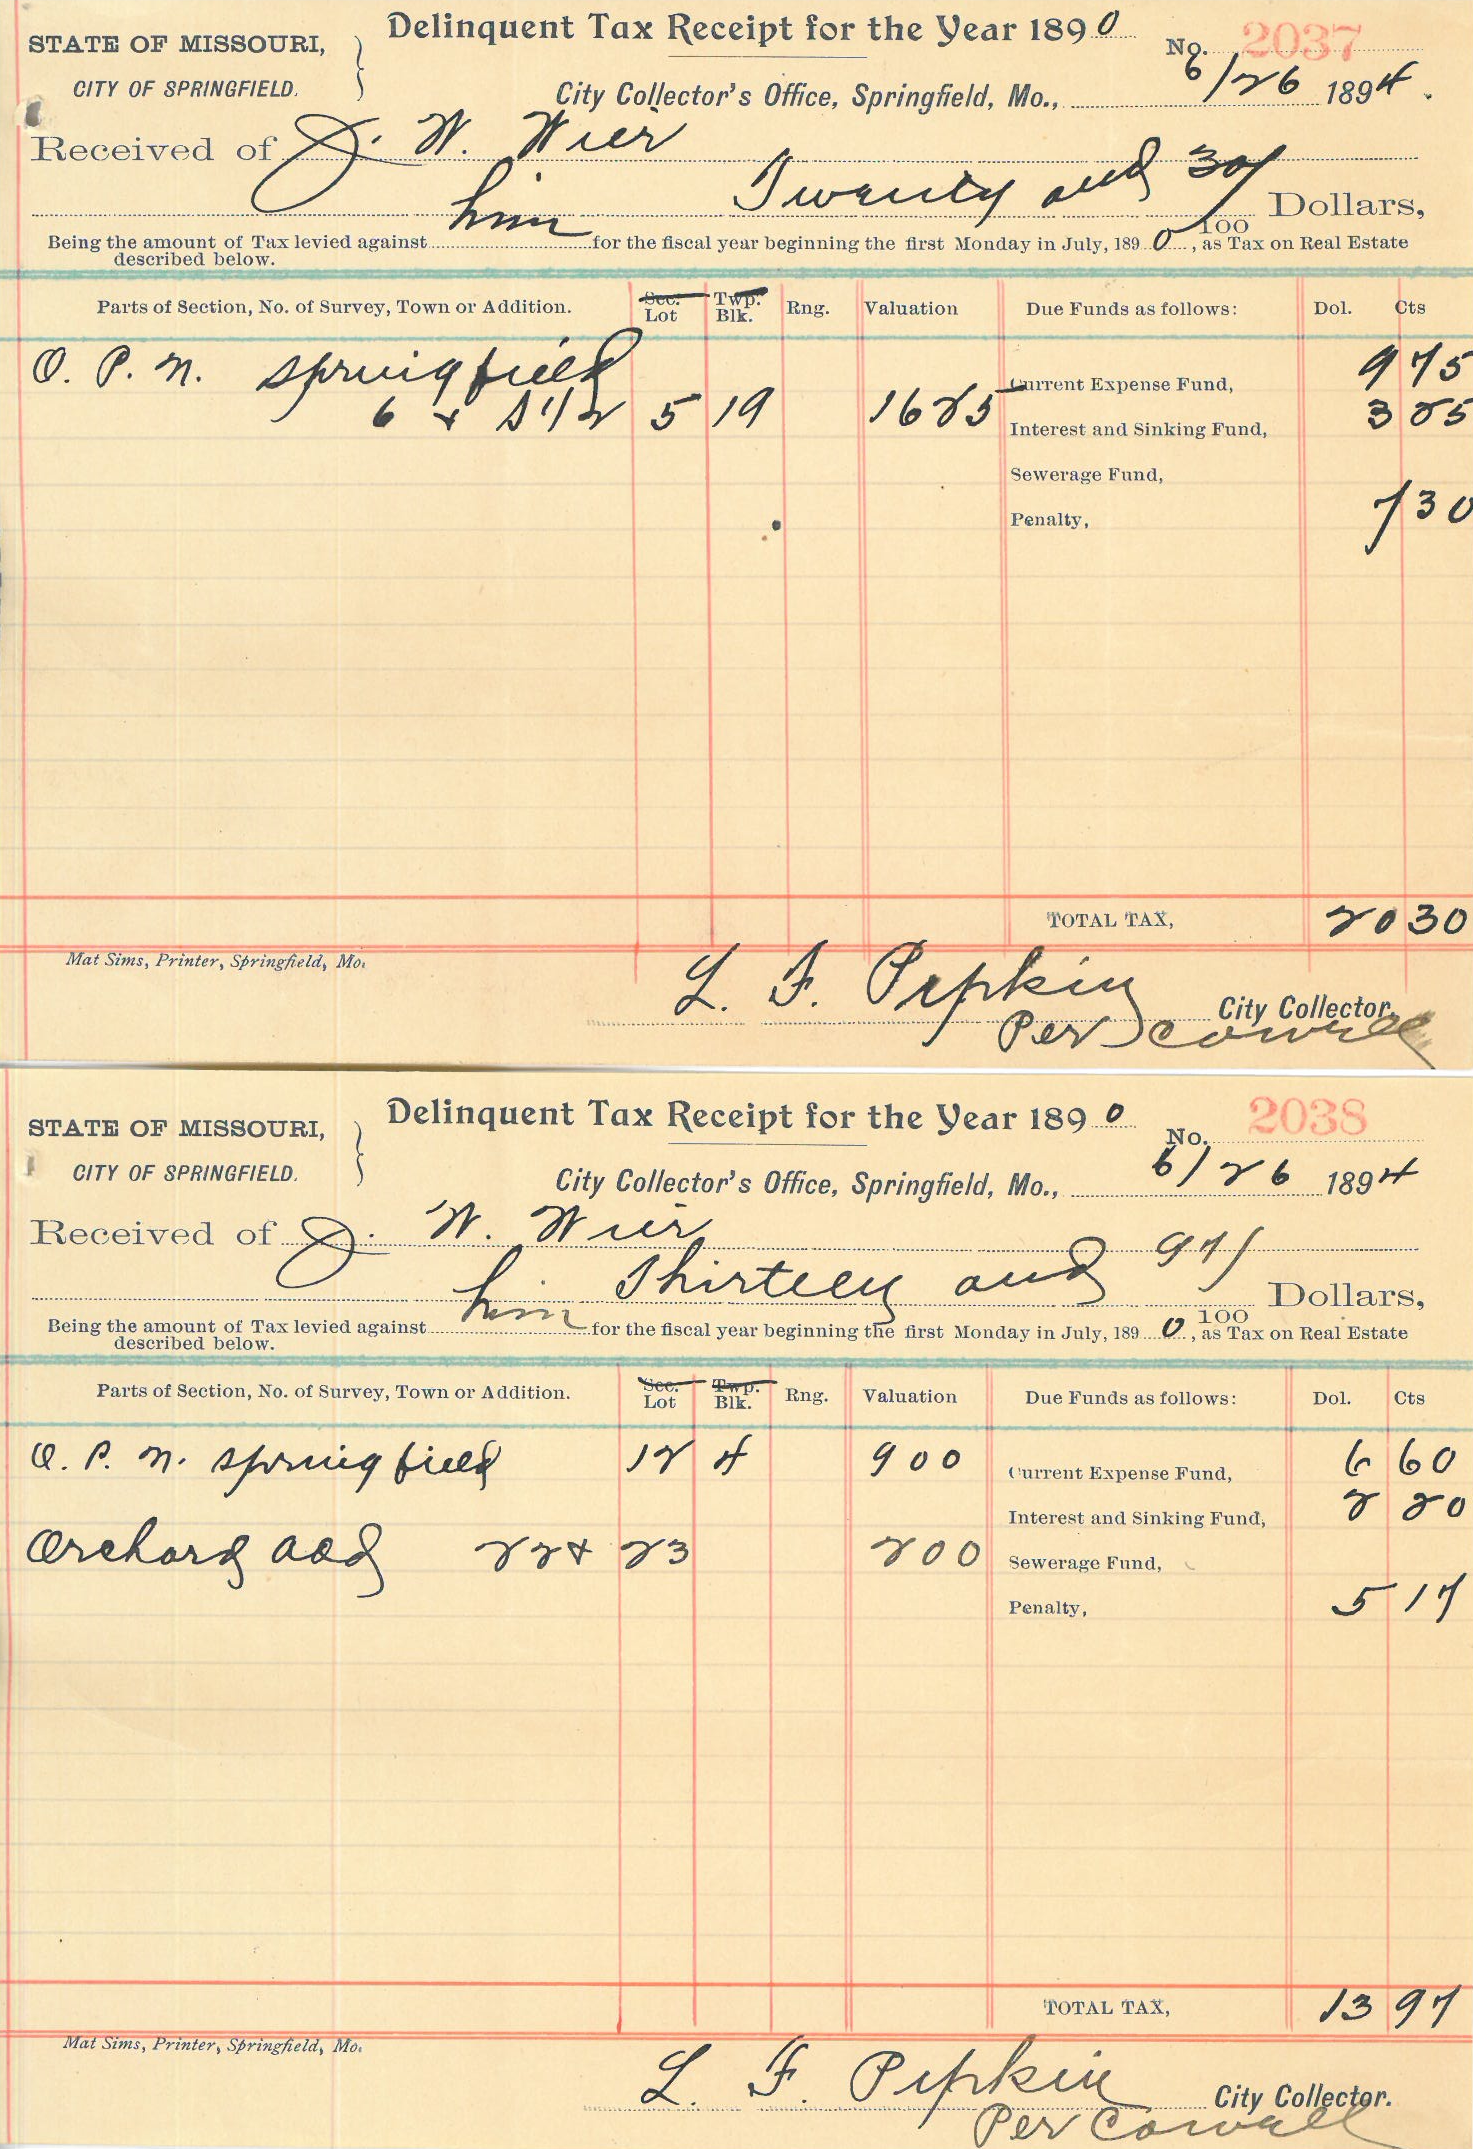 Delinquent Tax Receipt for the Year 1890
STATE OF MISSOURI,
CITY OF SPRINGFIELD.
No. 2037
City Collector's Office, Springfield, Mo., 6/26 1894.
Received of J. W. Wier
Twenty and 30/100 Dollars,
Being the amount of Tax levied against him for the fiscal year beginning the first Monday in July, 1890, as Tax on Real Estate
described below.
Parts of Section, No. of Survey, Town or Addition. Sec. Lot Twp. Blk. Rng. Valuation Due Funds as follows: Dol. Cts
O. P. N. Springfield
Current Expense Fund, 9 75
6 & S 1/2 5 19 1625 Interest and Sinking Fund, 3 25
Sewerage Fund,
Penalty, 7 30
TOTAL TAX, 20 30
Mat Sims, Printer, Springfield, Mo.
L. F. Pipkin City Collector.
Per Cowell
Delinquent Tax Receipt for the Year 1890
STATE OF MISSOURI,
CITY OF SPRINGFIELD.
No. 2038
City Collector's Office, Springfield, Mo., 6/26 1894
Received of J. W. Wier
Thirteen and 97/100 Dollars,
Being the amount of Tax levied against him for the fiscal year beginning the first Monday in July, 1890, as Tax on Real Estate
described below.
Parts of Section, No. of Survey, Town or Addition. Sec. Lot Twp. Blk. Rng. Valuation Due Funds as follows: Dol. Cts
O. P. N. Springfield 12 4 900 Current Expense Fund, 6 60
Interest and Sinking Fund, 2 20
Orchard add 22 & 23 200 Sewerage Fund,
Penalty, 5 17
TOTAL TAX, 13 97
Mat Sims, Printer, Springfield, Mo.
L. F. Pipkin City Collector.
Per Cowell